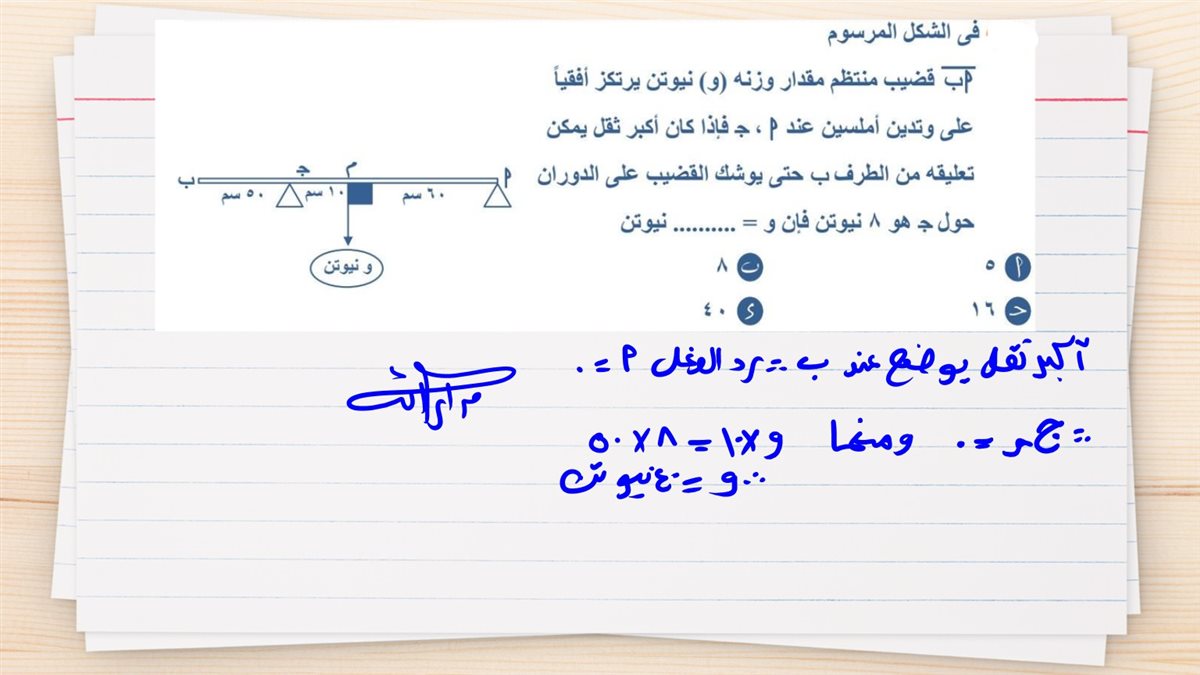 فى الشكل المرسوم
أب قضيب منتظم مقدار وزنه (و) نيوتن يرتكز أفقياً
على وتدين أملسين عند أ ، ج فإذا كان أكبر ثقل يمكن
تعليقه من الطرف ب حتى يوشك القضيب على الدوران
حول ج هو ٨ نيوتن فإن و = .......... نيوتن
أ ٥
ب ٨
ح ١٦
ى ٤٠
أ ٦٠ سم م ١٠ سم ج ٥٠ سم ب
و نيوتن
أكبر ثقل يوضع عند ب ∴ رد الفعل أ = ٠
∴ ج = ٠ ومنها و × ١٠ = ٨ × ٥٠
∴ و = ٤٠ نيوتن